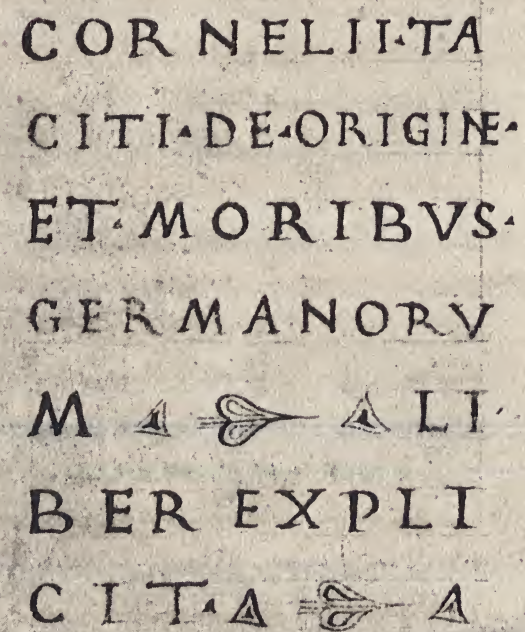 CORNELII·TA
CITI·DE·ORIGINE·
ET·MORIBVS·
GERMANORV
M LI
BER EXPLI
CIT·